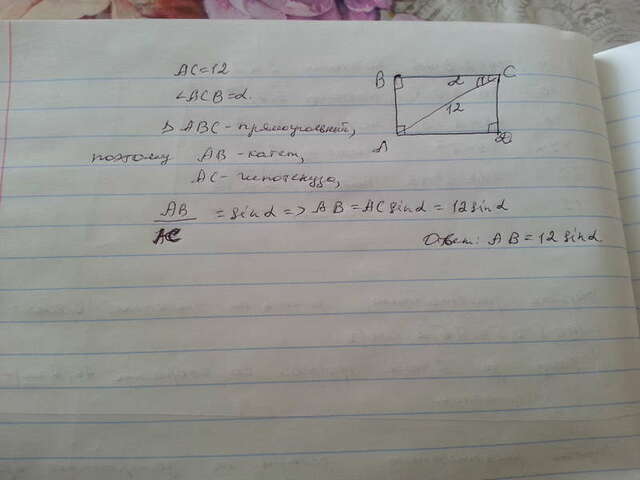 AC=12
∠BCB=α.
Δ ABC - прямоугольный,
поэтому AB - катет,
AC - гипотенуза,
AB
AC
= sin α => AB = AC sin α = 12 sin α
Ответ: AB = 12 sin α.
B
α
C
12
A
D